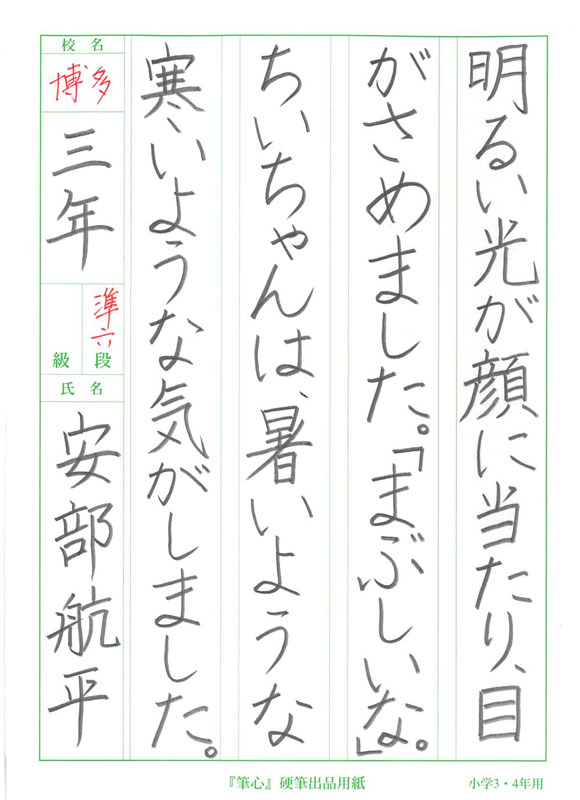 明るい光が顔に当たり、目
がさめました。「まぶしいな。」
ちいちゃんは、暑いような
寒いような気がしました。
校名
博多
三年
準六
級 段
氏名
安部航平
『筆心』硬筆出品用紙
小学3・4年用